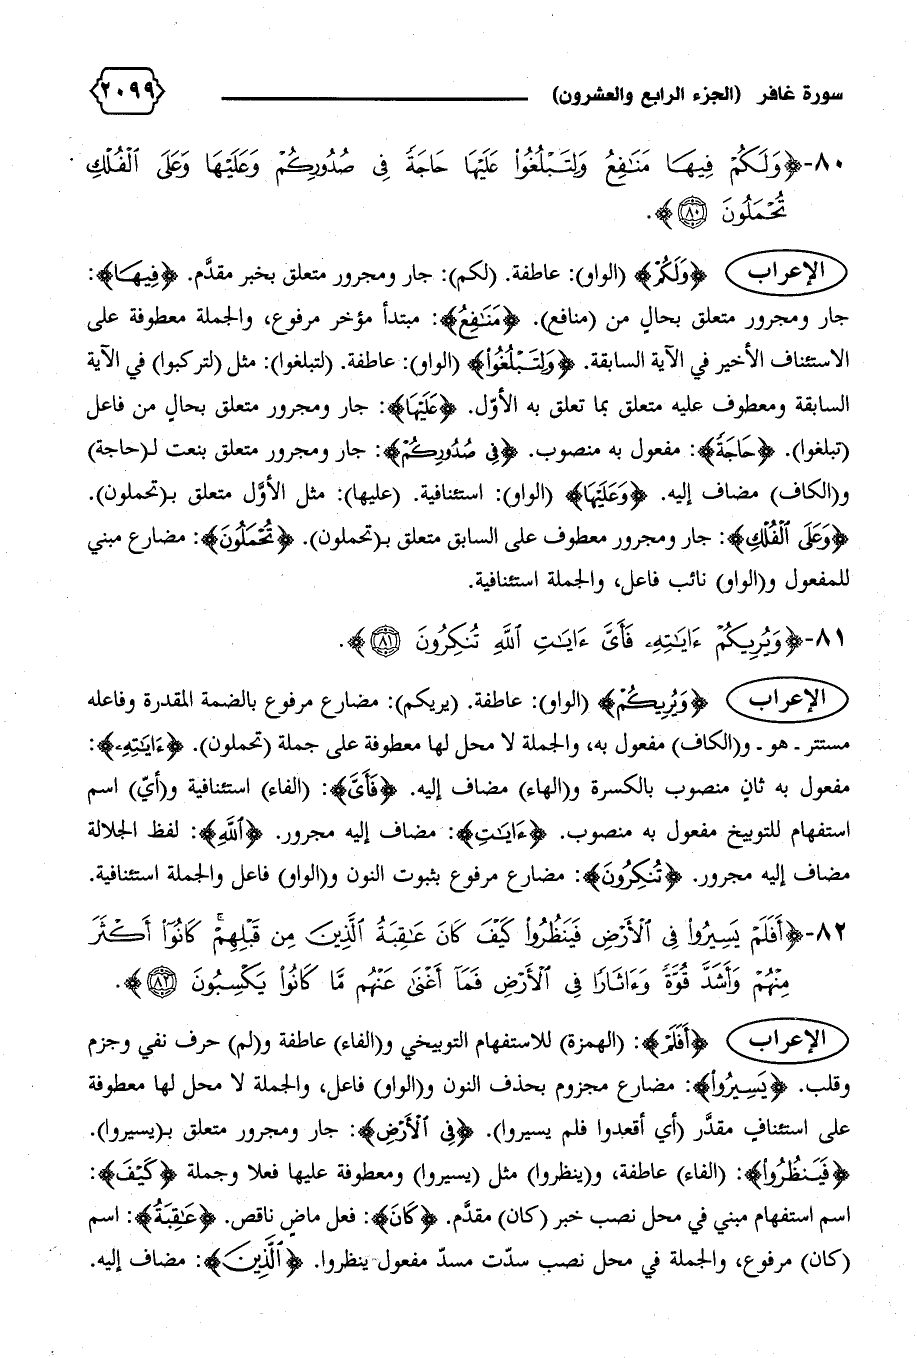 سورة غافر (الجزء الرابع والعشرون) ٢٠٩٩
٨٠- ﴿وَلَكُمْ فِيهَا مَنَٰفِعُ وَلِتَبْلُغُوا۟ عَلَيْهَا حَاجَةً فِى صُدُورِكُمْ وَعَلَيْهَا وَعَلَى ٱلْفُلْكِ
تُحْمَلُونَ ٨٠﴾.
الإعراب ﴿وَلَكُمْ﴾ (الواو): عاطفة. (لكم): جار ومجرور متعلق بخبر مقدَّم. ﴿فِيهَا﴾:
جار ومجرور متعلق بحالٍ من (منافع). ﴿مَنَٰفِعُ﴾: مبتدأ مؤخر مرفوع، والجملة معطوفة على
الاستئناف الأخير في الآية السابقة. ﴿وَلِتَبْلُغُوا۟﴾ (الواو): عاطفة. (لتبلغوا): مثل (لتركبوا) في الآية
السابقة ومعطوف عليه متعلق بما تعلق به الأوّل. ﴿عَلَيْهَا﴾: جار ومجرور متعلق بحالٍ من فاعل
(تبلغوا). ﴿حَاجَةً﴾: مفعول به منصوب. ﴿فِى صُدُورِكُمْ﴾: جار ومجرور متعلق بنعت لـ(حاجة)
و(الكاف) مضاف إليه. ﴿وَعَلَيْهَا﴾ (الواو): استئنافية. (عليها): مثل الأوَّل متعلق بـ(تحملون).
﴿وَعَلَى ٱلْفُلْكِ﴾: جار ومجرور معطوف على السابق متعلق بـ(تحملون). ﴿تُحْمَلُونَ﴾: مضارع مبني
للمفعول و(الواو) نائب فاعل، والجملة استئنافية.
٨١- ﴿وَيُرِيكُمْ ءَايَٰتِهِۦ فَأَىَّ ءَايَٰتِ ٱللَّهِ تُنكِرُونَ ٨١﴾.
الإعراب ﴿وَيُرِيكُمْ﴾ (الواو): عاطفة. (يريكم): مضارع مرفوع بالضمة المقدرة وفاعله
مستتر ـ هو ـ و(الكاف) مفعول به، والجملة لا محل لها معطوفة على جملة (تحملون). ﴿ءَايَٰتِهِۦ﴾:
مفعول به ثانٍ منصوب بالكسرة و(الهاء) مضاف إليه. ﴿فَأَىَّ﴾: (الفاء) استئنافية و(أيّ) اسم
استفهام للتوبيخ مفعول به منصوب. ﴿ءَايَٰتِ﴾: مضاف إليه مجرور. ﴿ٱللَّهِ﴾: لفظ الجلالة
مضاف إليه مجرور. ﴿تُنكِرُونَ﴾: مضارع مرفوع بثبوت النون و(الواو) فاعل والجملة استئنافية.
٨٢- ﴿أَفَلَمْ يَسِيرُوا۟ فِى ٱلْأَرْضِ فَيَنظُرُوا۟ كَيْفَ كَانَ عَٰقِبَةُ ٱلَّذِينَ مِن قَبْلِهِمْ ۚ كَانُوٓا۟ أَكْثَرَ
مِنْهُمْ وَأَشَدَّ قُوَّةً وَءَاثَارًا فِى ٱلْأَرْضِ فَمَآ أَغْنَىٰ عَنْهُم مَّا كَانُوا۟ يَكْسِبُونَ ٨٢﴾.
الإعراب ﴿أَفَلَمْ﴾: (الهمزة) للاستفهام التوبيخي و(الفاء) عاطفة و(لم) حرف نفي وجزم
وقلب. ﴿يَسِيرُوا۟﴾: مضارع مجزوم بحذف النون و(الواو) فاعل، والجملة لا محل لها معطوفة
على استئنافٍ مقدَّر (أي أقعدوا فلم يسيروا). ﴿فِى ٱلْأَرْضِ﴾: جار ومجرور متعلق بـ(يسيروا).
﴿فَيَنظُرُوا۟﴾: (الفاء) عاطفة، و(ينظروا) مثل (يسيروا) ومعطوفة عليها فعلا وجملة ﴿كَيْفَ﴾:
اسم استفهام مبني في محل نصب خبر (كان) مقدَّم. ﴿كَانَ﴾: فعل ماضٍ ناقص. ﴿عَٰقِبَةُ﴾: اسم
(كان) مرفوع، والجملة في محل نصب سدّت مسدّ مفعول ينظروا. ﴿ٱلَّذِينَ﴾: مضاف إليه.